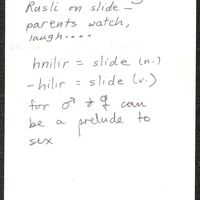 Rusli on slide —
parents watch,
laugh....
hnilir = slide (n.)
-hilir = slide (v.)
for ♂ & ♀ can
be a prelude to
sex